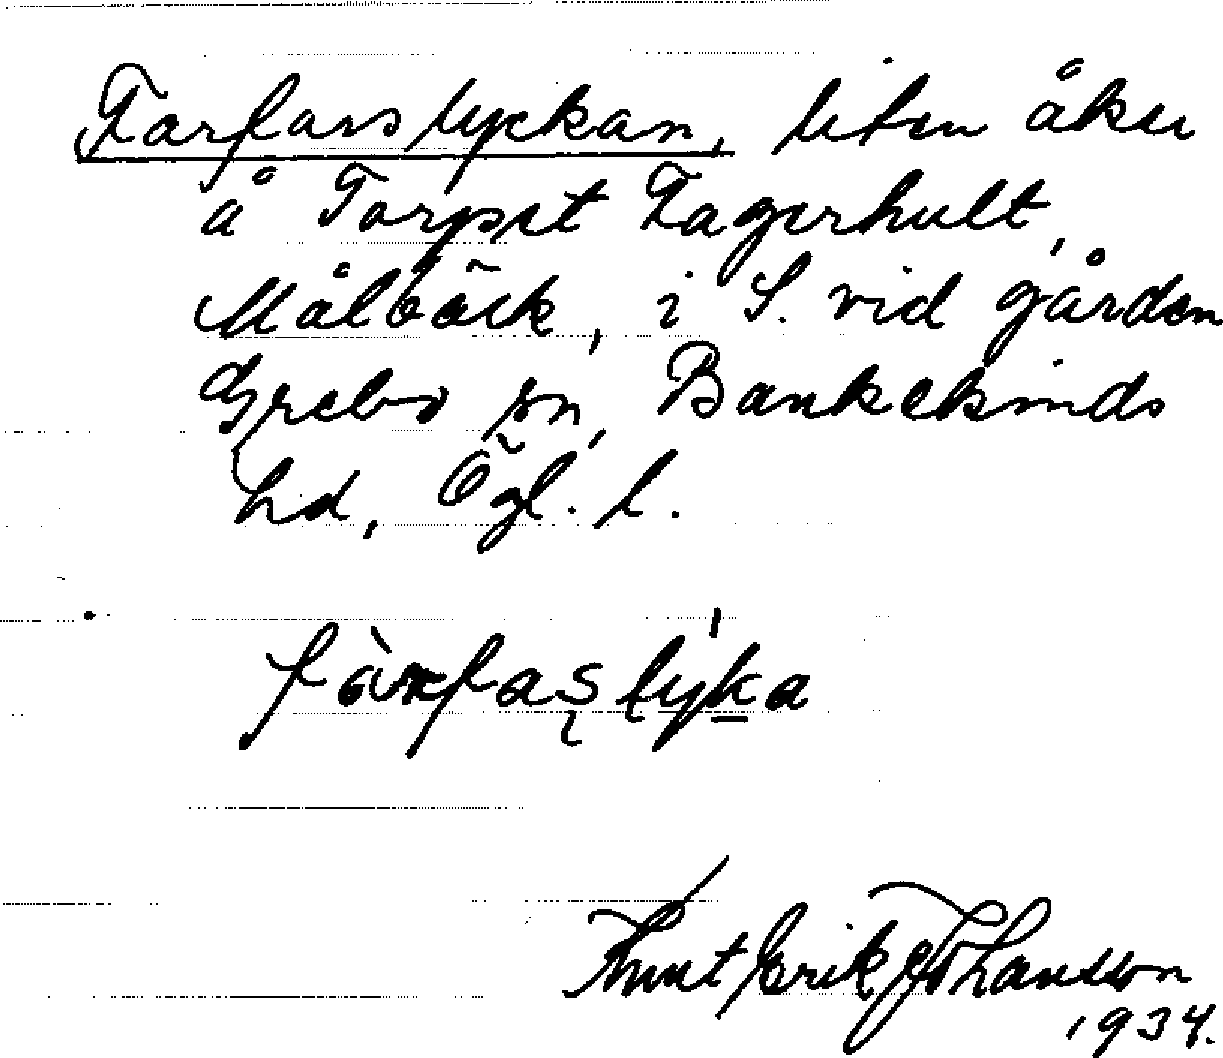 Farfarslyckan, liten åker
å Torpet Fagerhult,
Målbäck, i S. vid gården
Grebo sn, Bankekinds
hd, Ögl. l.
fàrfaslyka
Knut Erik Johansson
1934.